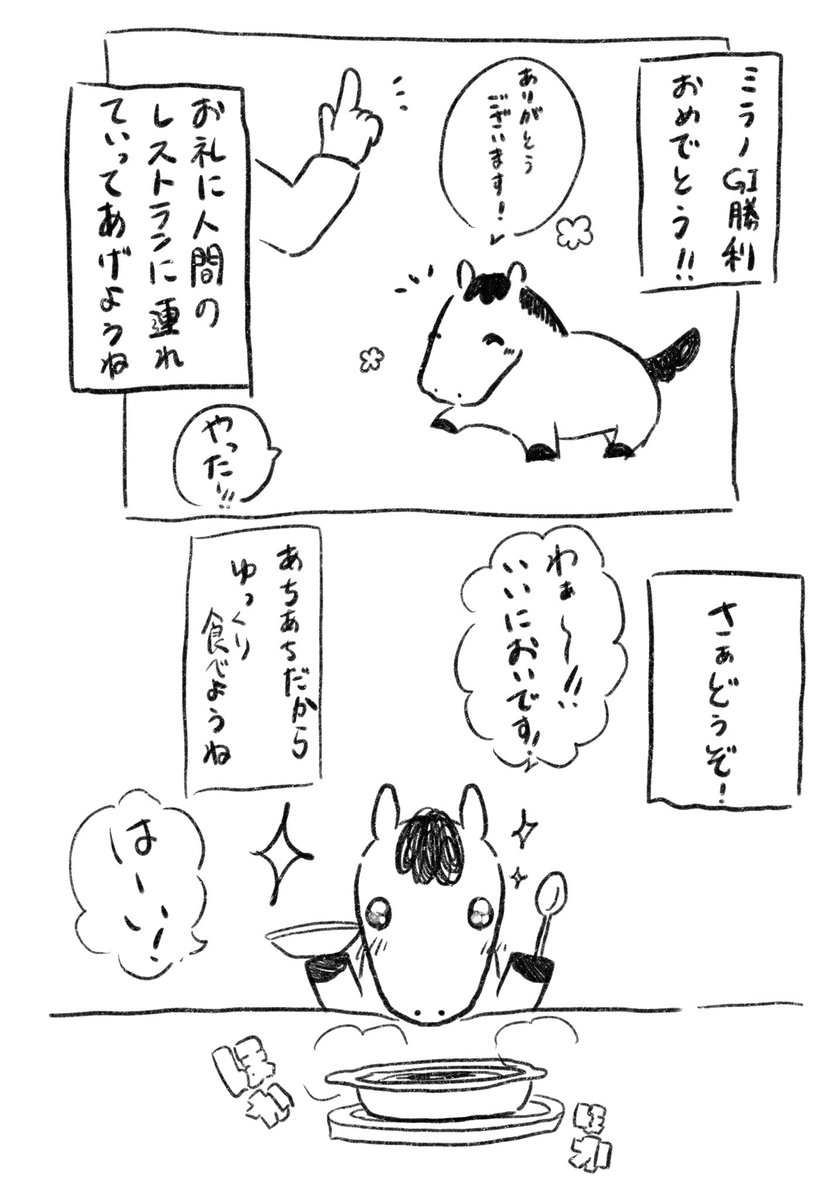 ミラノGI勝利
おめでとう!!
ありがとう
ございます!
お礼に人間の
レストランに連れ
ていってあげようね
やった!!
さぁどうぞ!
わぁ〜!!
いいにおいです!
あちあちだから
ゆっくり
食べようね
はーい!
ほか
ほか